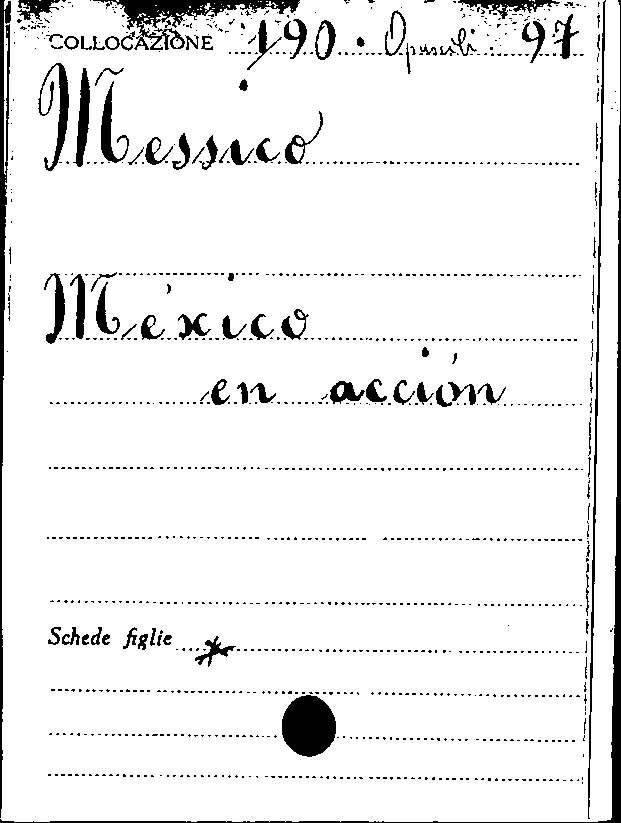 COLLOCAZIONE 190 · Opuscoli 97
Messico
México
en acción
Schede figlie